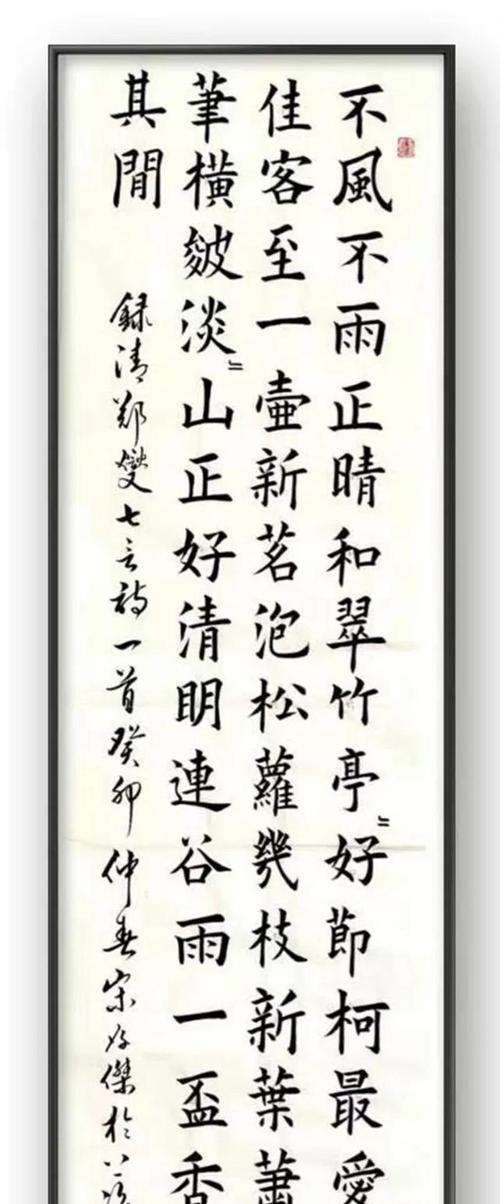 不風不雨正晴和翠竹亭〻好節柯最愛
佳客至一壺新茗泡松蘿幾枝新葉蕭
筆橫皴淡〻山正好清明連谷雨一盃香
其閒
録清郑燮七言詩一首癸卯仲春宋傑於